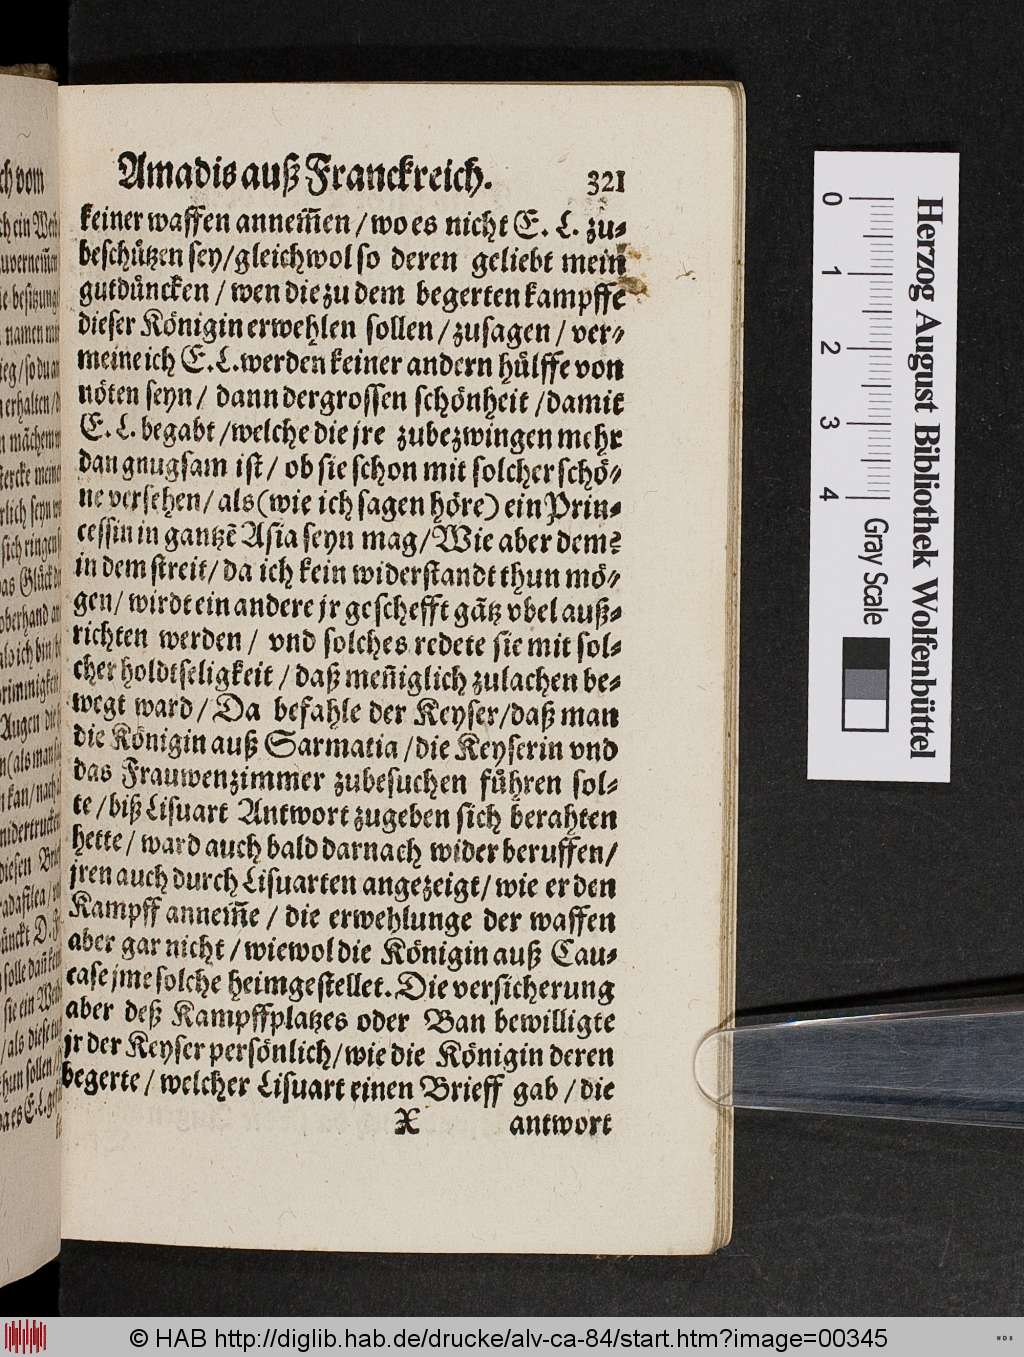 Amadis auß Franckreich. 321
keiner waffen annem̃en / wo es nicht E. L. zu⸗
beschützen sey / gleichwol so deren geliebt mein
gutdüncken / wen die zu dem begerten kampffe
dieser Königin erwehlen sollen / zusagen / ver⸗
meine ich E. L. werden keiner andern hülffe von
nöten seyn / dann der grossen schönheit / damit
E. L. begabt / welche die jre zubezwingen mehr
dan gnugsam ist / ob sie schon mit solcher schö⸗
ne versehen / als (wie ich sagen höre) ein Prin⸗
cessin in gantzẽ Asia seyn mag / Wie aber dem?
in dem streit / da ich kein widerstandt thun mö⸗
gen / wirdt ein andere jr geschefft gãtz vbel auß⸗
richten werden / vnd solches redete sie mit sol⸗
cher holdtseligkeit / daß meñiglich zulachen be⸗
wegt ward / Da befahle der Keyser / daß man
die Königin auß Sarmatia / die Keyserin vnd
das Frauwenzimmer zubesuchen führen sol⸗
te / biß Lisuart Antwort zugeben sich berahten
hette / ward auch bald darnach wider beruffen /
jren auch durch Lisuarten angezeigt / wie er den
Kampff annem̃e / die erwehlunge der waffen
aber gar nicht / wiewol die Königin auß Cau⸗
case jme solche heimgestellet. Die versicherung
aber deß Kampffplatzes oder Ban bewilligte
jr der Keyser persönlich / wie die Königin deren
begerte / welcher Lisuart einen Brieff gab / die
X antwort
Herzog August Bibliothek Wolfenbüttel
0 1 2 3 4 Gray Scale
© HAB http://diglib.hab.de/drucke/alv-ca-84/start.htm?image=00345